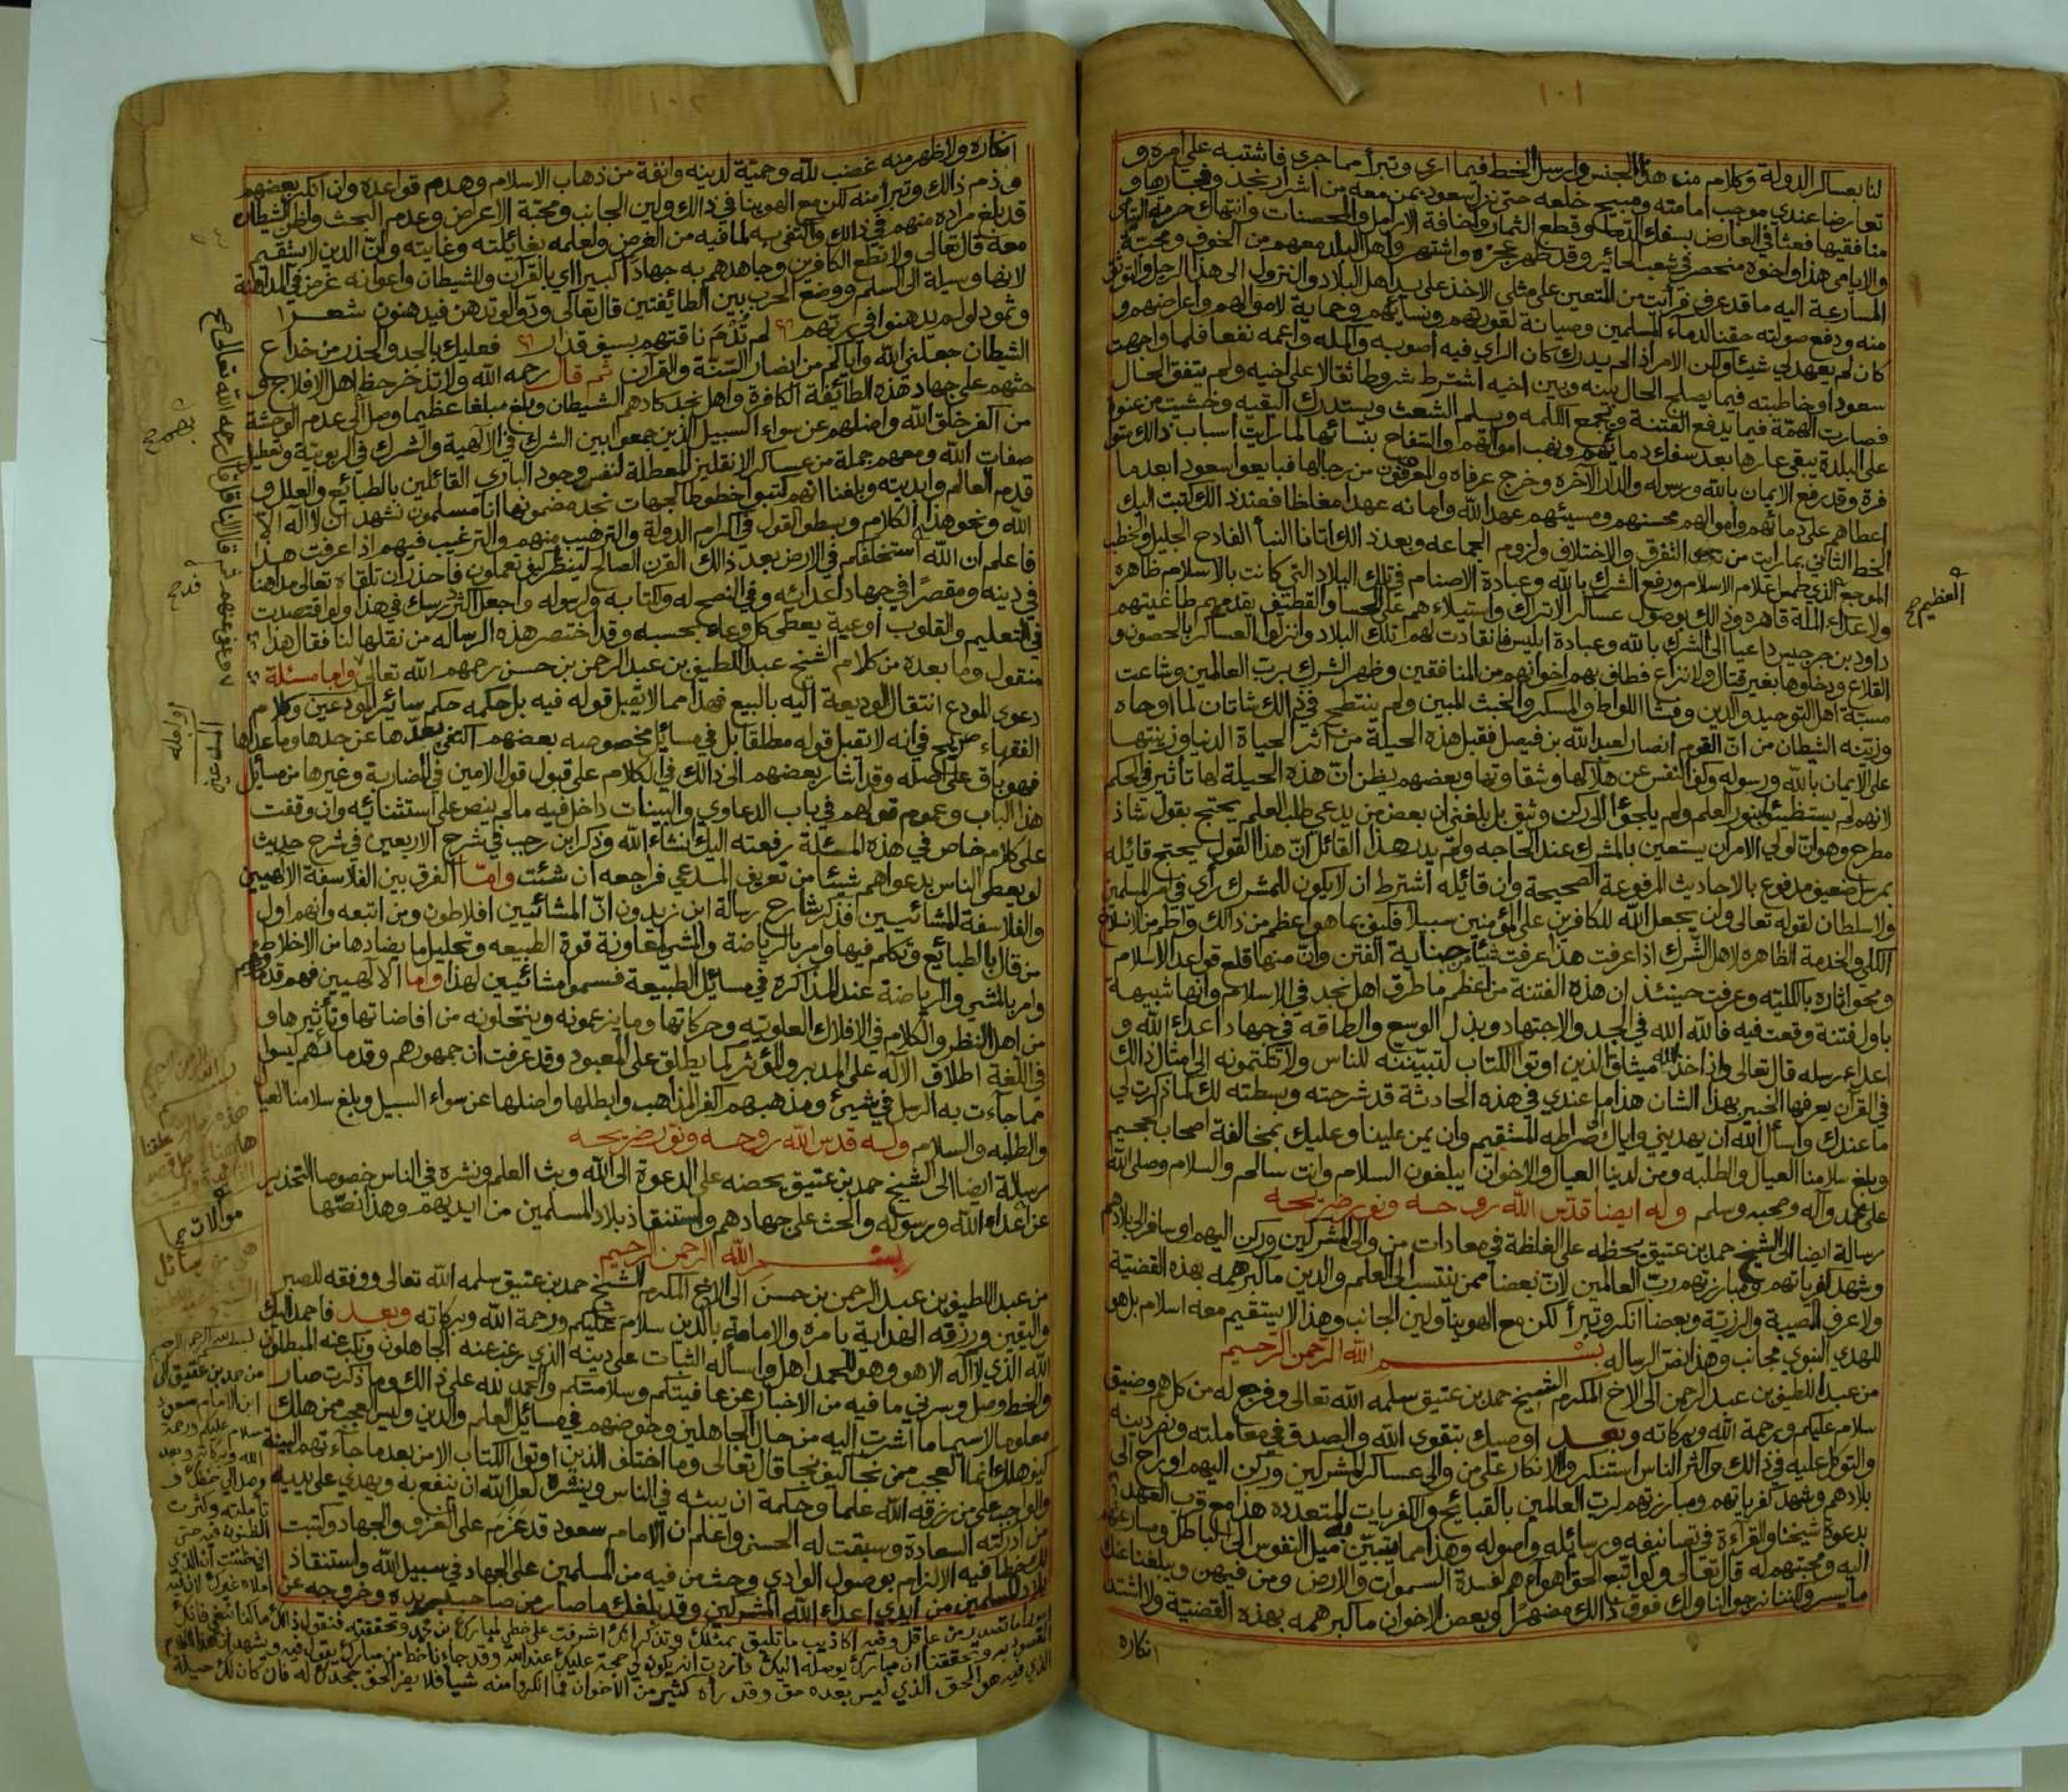 ١٠١
لنا بعساكر الدولة وكلام من هذا الجنس وارسل الخط فيما ارى وتبرأ مما جرى فاشتبه علي امره و
تعارضا عندي موجب امامته ومبيح خلعه حتى نزل سعود بمن معه من اشرار نجد وفجارها و
منافقيها فعثا في الارض بسفك الدماء وقطع الثمار واخافة الارامل والمحصنات وانتهاك حرمة اليتامى
والايامى هذا واخوه منحصر في شعب الحائر وقد ظهر عجزه واشتهر واهل البلد معهم من الخوف ومحبة
المسارعة اليه ما قد عرف فرأيت من المتعين على مثلي الاخذ على يد اهل البلاد والنزول الى هذا الرجل والتوثق
منه ودفع صولته حقنا لدماء المسلمين وصيانة لعوراتهم ونسائهم وحماية لاموالهم واعراضهم و
كان لم يعهد لي شيئا ولكن الامر اذا لم يدرك كان الرأي فيه اصوبه واكمله واعمه نفعا فلما واجهت
سعودا وخاطبته فيما يصلح الحال بينه وبين اخيه اشترط شروطا ثقالا على اخيه ولم يتفق الحال
فصارت الهمة فيما يدفع الفتنة ويجمع الكلمة ويلم الشعث ويستدرك البقية وخشيت من عنوة
على البلدة يبقى عارها بعد سفك دمائهم ونهب اموالهم والسفاح بنسائها لما رايت اسباب ذالك متو
فرة وقد رفع الايمان بالله ورسوله والدار الآخرة وخرج عرفاه والمعروفون من رجالها فبايعوا سعودا بعد ما
اعطاهم على دمائهم واموالهم محسنهم ومسيئهم عهد الله وامانه عهدا مغلظا فعند ذالك كتبت اليك
الخط الثاني بما رايت من ترك التفرق والاختلاف ولزوم الجماعه وبعد ذالك اتانا النبأ الفادح الجليل والخطب
العظيم صح
الموجع الذي طمس اعلام الاسلام ورفع الشرك بالله وعبادة الاصنام في تلك البلاد التي كانت بالاسلام ظاهره
ولاعداء الملة قاهره وذالك بوصول عساكر الاتراك واستيلاءهم على الحسا والقطيف يقدمهم طاغيتهم
داود بن جرجيس داعيا الى الشرك بالله وعبادة ابليس فانقادت لهم تلك البلاد وانزلوا العساكر بالحصون و
القلاع ودخلوها بغير قتال ولا نزاع فطاف بهم اخوانهم من المنافقين وظهر الشرك برب العالمين وشاعت
مسبة اهل التوحيد والدين وفشا اللواط والمسكر والخبث المبين ولم ينتطح في ذالك شاتان لما اوحاه
وزينه الشيطان من ان القوم انصار لعبد الله بن فيصل فقبل هذه الحيلة من اثر الحياة الدنيا وزينتها
على الايمان بالله ورسوله وكف النفس عن هلاكها وشقاوتها وبعضهم يظن ان هذه الحيلة لها تأثير في الحكم
لانهم لم يستظيئوا بنور العلم ولم يلجؤا الى ركن وثيق بل بلغني ان بعض من يدعي طلب العلم يحتج بقول شاذ
مطرح وهو ان لولي الامر ان يستعين بالمشرك عند الحاجه ولم يدر هذا القائل ان هذا القول يحتج قائله
بمرسل ضعيف مدفوع بالاحاديث المرفوعة الصحيحة وان قائله اشترط ان لا يكون للمشرك رأي في امر المسلمين
ولا سلطان لقوله تعالى ولن يجعل الله للكافرين على المؤمنين سبيلا فكيف بما هو اعظم من ذالك واطم من الانسلاخ
الكلي والخدمة الظاهره لاهل الشرك اذا عرفت هذا عرفت شيئا من جناية الفتن وان منها قلع قواعد الاسلام
ومحو اثاره بالكليه وعرفت حينئذ ان هذه الفتنة من اعظم ما طرق اهل نجد في الاسلام وانها شبيهة
باول فتنة وقعت فيه فالله الله في الجد والاجتهاد وبذل الوسع والطاقه في جهاد اعداء الله و
اعداء رسله قال تعالى واذا اخذ الله ميثاق الذين اوتوا الكتاب لتبيننه للناس ولا تكتمونه الى امثال ذالك
في القرآن يعرفها الخبير بهذا الشان هذا ما عندي في هذه الحادثة قد شرحته وبسطته لك كما ذكرت لي
ما عندك واسأل الله ان يهديني واياك صراطه المستقيم وان يمن علينا وعليك بمخالفة اصحاب الجحيم
وبلغ سلامنا العيال والطلبه ومن لدينا العيال والاخوان ايبلغون السلام وانت سالم والسلام وصلى الله
على محمد وآله وصحبه وسلم وله ايضا قدس الله روحه ونور ضريحه
رسالة ايضا الى الشيخ حمد بن عتيق يحظه على الغلظة في معادات من والى المشركين وركن اليهم او سافر الى بلادهم
وشهد كفرياتهم ومبارزتهم رب العالمين لان بعضا ممن ينتسب الى العلم والدين ما كبر همه بهذه القضية
ولا عرف المصيبة والرزية وبعضا انكر وتبرأ لكن مع الهوينا ولين الجانب وهذا لا يستقيم معه اسلام بل هو
للهدي النبوي مجانب وهذا نص الرساله بسم الله الرحمن الرحيم
من عبد اللطيف بن عبد الرحمن الى الاخ المكرم الشيخ حمد بن عتيق سلمه الله تعالى وفرج له من كل هم وضيق
سلام عليكم ورحمة الله وبركاته وبعد اوصيك بتقوى الله والصدق في معاملته ونصر دينه
والتوكل عليه في ذالك واكثر الناس استنكروا الانكار على من والى عساكر المشركين وركن اليهم او رح الى
بلادهم وشهد كفرياتهم ومبارزتهم لرب العالمين بالقبائح والكفريات المتعدده هذا مع قرب العهد
بدعوة شيخنا والقراءة في تصانيفه ورسائله واصوله وهذا مما يتبين به ميل النفوس الى الباطل ومسارعتهم
اليه ومحبتهم له قال تعالى ولو اتبع الحق اهواءهم لفسدة السموات والارض ومن فيهن ويبلغنا عنك
ما يسر ولكننا نرجوا لنا ولك فوق ذالك مضهرا وبعض الاخوان ما كبر همه بهذه القضية ولا اشتد
انكاره
١٠٢
انكاره ولا ظهر منه غضب لله وحمية لدينه وانفة من ذهاب الاسلام وهدم قواعده وان انكر بعضهم
وذم ذالك وتبرأ منه لكن مع الهوينا في ذالك ولين الجانب ومحبة الاعراض وعدم البحث واظن الشيطان
قد بلغ مراده منهم في ذالك واكتفى به لما فيه من الغرض ولعلمه بغائلته وغايته وان الدين لا يستقيم
معه قال تعالى ولا تطع الكافرين وجاهدهم به جهادا كبيرا اي بالقرآن وللشيطان واعوانه غرض في المداهنة
لانها وسيلة الى السلم ووضع الحرب بين الطائفتين قال تعالى ودوا لو تدهن فيدهنون شعرا
وثمود لو لم يدهنوا في ربهم لم تُدْمَ ناقتهم بسيف قدار فعليك بالجد والحذر من خداع
الشيطان جعلني الله واياكم من انصار السنة والقرآن ثم قال رحمه الله ولا تدخر حظ اهل الافلاج و
حثهم على جهاد هذه الطائفة الكافرة واهل نجد كادهم الشيطان وبلغ مبلغا عظيما وصل الى عدم الوحشة
من اكفر خلق الله واضلهم عن سواء السبيل الذين جمعوا بين الشرك في الالهية والشرك في الربوبية وتعطيل
صفات الله ومعهم جملة من عساكر الانقليز المعطلة لنفس وجود الباري القائلين بالطبائع والعلل و
قدم العالم وابديته وبلغنا انهم كتبوا خطوطا لجهات نجد مضمونها انا مسلمون نشهد ان لا اله الا
الله ونحو هذا الكلام وبسطوا القول في اكرام الدولة والترهيب منهم والترغيب فيهم اذا عرفت هذا
فاعلم ان الله استخلفكم في الارض بعد ذالك القرن الصالح لينظر كيف تعملون فاحذر ان تلقاه تعالى مداهنا
في دينه ومقصرا في جهاد اعدائه وفي النصح له ولكتابه ولرسوله واجعل اكثر درسك في هذا ولو اقتصدت
في التعليم والقلوب اوعية يعطى كل وعاء بحسبه وقد اختصر هذه الرساله من نقلها لنا فقال هذا
منقول وما بعده من كلام الشيخ عبد اللطيف بن عبد الرحمن بن حسن رحمهم الله تعالى واما مسئلة
دعوى المودع انتقال الوديعة اليه بالبيع فهذا مما لا يقبل قوله فيه بل حكمه حكم سائر المدعين وكلام
الفقهاء صريح في انه لا تقبل قوله مطلقا بل في مسائل مخصوصه بعضهم اكتفى بعدها عن حدها وما عداها
فهو باق على اصله وقد اشار بعضهم الى ذالك في الكلام على قبول قول الامين في المضاربة وغيرها من مسائل
هذا الباب وعموم قولهم في باب الدعاوي والبينات داخل فيه ما لم ينص على استثنائه وان وقفت
على كلام خاص في هذه المسئلة رفعته اليك انشاء الله وذكر ابن رجب في شرح الاربعين في شرح حديث
لو يعطى الناس بدعواهم شيئا من تعريف المدعي فراجعه ان شئت واما الفرق بين الفلاسفة الالهيين
والفلاسفة المشائيين فذكر شارح رسالة ابن زيدون ان المشائيين افلاطون ومن اتبعه وانهم اول
من قال بالطبائع وتكلم فيها وامر بالرياضة والمشي لمعاونة قوة الطبيعه وتحليل ما يضادها من الاخلاط
وامر بالمشي والرياضة عند المذاكرة في مسائل الطبيعة فسموا مشائيين لهذا واما الالهيين فهم قدماؤهم
من اهل النظر والكلام في الافلاك العلويه وحركاتها وما يزعمونه وينتحلونه من افاضاتها وتأثيرها و
في اللغة اطلاق الاله على المدبر والمؤثر كما يطلق على المعبود وقد عرفت ان جمهورهم وقدمائهم ليسوا
مما جاءت به الرسل في شيئ ومذهبهم اكفر المذاهب وابطلها واضلها عن سواء السبيل وبلغ سلامنا العيال
والطلبه والسلام وله قدس الله روحه ونور ضريحه
رسالة ايضا الى الشيخ حمد بن عتيق يحضه على الدعوة الى الله وبث العلم ونشره في الناس خصوصا التحذير
عن اعداء الله ورسوله والحث على جهادهم واستنقاذ بلاد المسلمين من ايديهم وهذا نصها
بسم الله الرحمن الرحيم
من عبد اللطيف بن عبد الرحمن بن حسن الى الاخ المكرم الشيخ حمد بن عتيق سلمه الله تعالى ووفقه للصبر
واليقين ورزقه الهداية بامره والامامة بالدين سلام عليكم ورحمة الله وبركاته وبعد فاحمد اليك
الله الذي لا اله الا هو وهو للحمد اهل واسأله الثبات على دينه الذي رغب عنه الجاهلون ونكب عنه المبطلون
والخط وصل وسرني ما فيه من الاخبار عن عافيتكم وسلامتكم والحمد لله على ذالك وما ذكرت صار
معلوما لاسيما ما اشرت اليه من حال الجاهلين وخوضهم في مسائل العلم والدين وليس العجب ممن هلك
كيف هلك انما العجب ممن نجا كيف نجا قال تعالى وما اختلف الذين اوتوا الكتاب الا من بعد ما جاءتهم البينة
والواجب على من رزقه الله علما وحكمة ان يبثه في الناس وينشره لعل الله ان ينفع به ويهدي على يديه
من ادركته السعادة وسبقت له الحسنى واعلم ان الامام سعود قد عزم على الغزو والجهاد وكتبت
لك خطا فيه الالزام بوصول الوادي وحث من فيه من المسلمين على الجهاد في سبيل الله واستنقاذ
بلاد المسلمين من ايدي اعداء الله المشركين وقد بلغك ما صار من صاحب بريده وخروجه عن
بسم الله الرحمن الرحيم
من حمد بن عتيق الى
الامام سعود
سلام عليكم ورحمة
الله وبركاته وبعد
وصل الي خطك و
تأملته وكثرت
الظنون فيه حتى